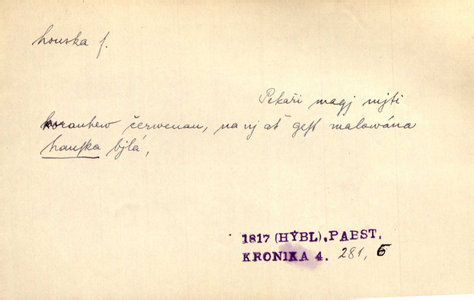 houska f.
Pekaři magj mjti
korauhew čerwenau, na nj ať gest malowána
hauska bjlá,
1817 (HÝBL), PABST.
KRONIKA 4. 281, 6